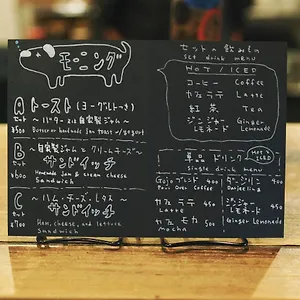 モーニング
A トースト(ヨーグルトつき)
〜バター or 自家製ジャム〜
¥500 Butter or handmade Jam toast w/yogurt
B 〜自家製ジャムとクリームチーズ〜
サンドイッチ
Homemade Jam & cream cheese
Sandwich
C 〜ハム・チーズ・レタス〜
サンドイッチ
¥700 Ham, cheese, and lettuce
Sandwich
セットの飲みもの
set drink menu
HOT / ICED
コーヒー Coffee
カフェラテ Latte
紅茶 Tea
ジンジャーレモネード Ginger Lemonade
単品ドリンク HOT & ICED
single drink menu
450
Pour Over Coffee
カフェラテ 450
Latte
カフェモカ 500
mocha
ダージリン 400
Darjeeling
ジンジャーレモネード 450
Ginger Lemonade